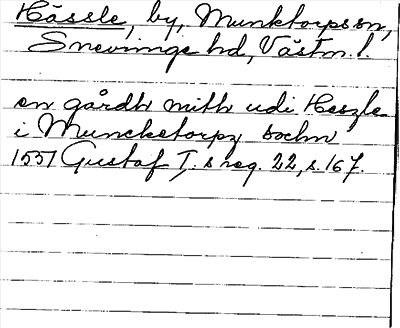 Hässle, by, Munktorps sn,
Snevringe hd, Västm. l.
en gårdh mith udi Heszle
i Muncketorpz sochn
1551 Gustaf I:s reg. 22, s. 167.